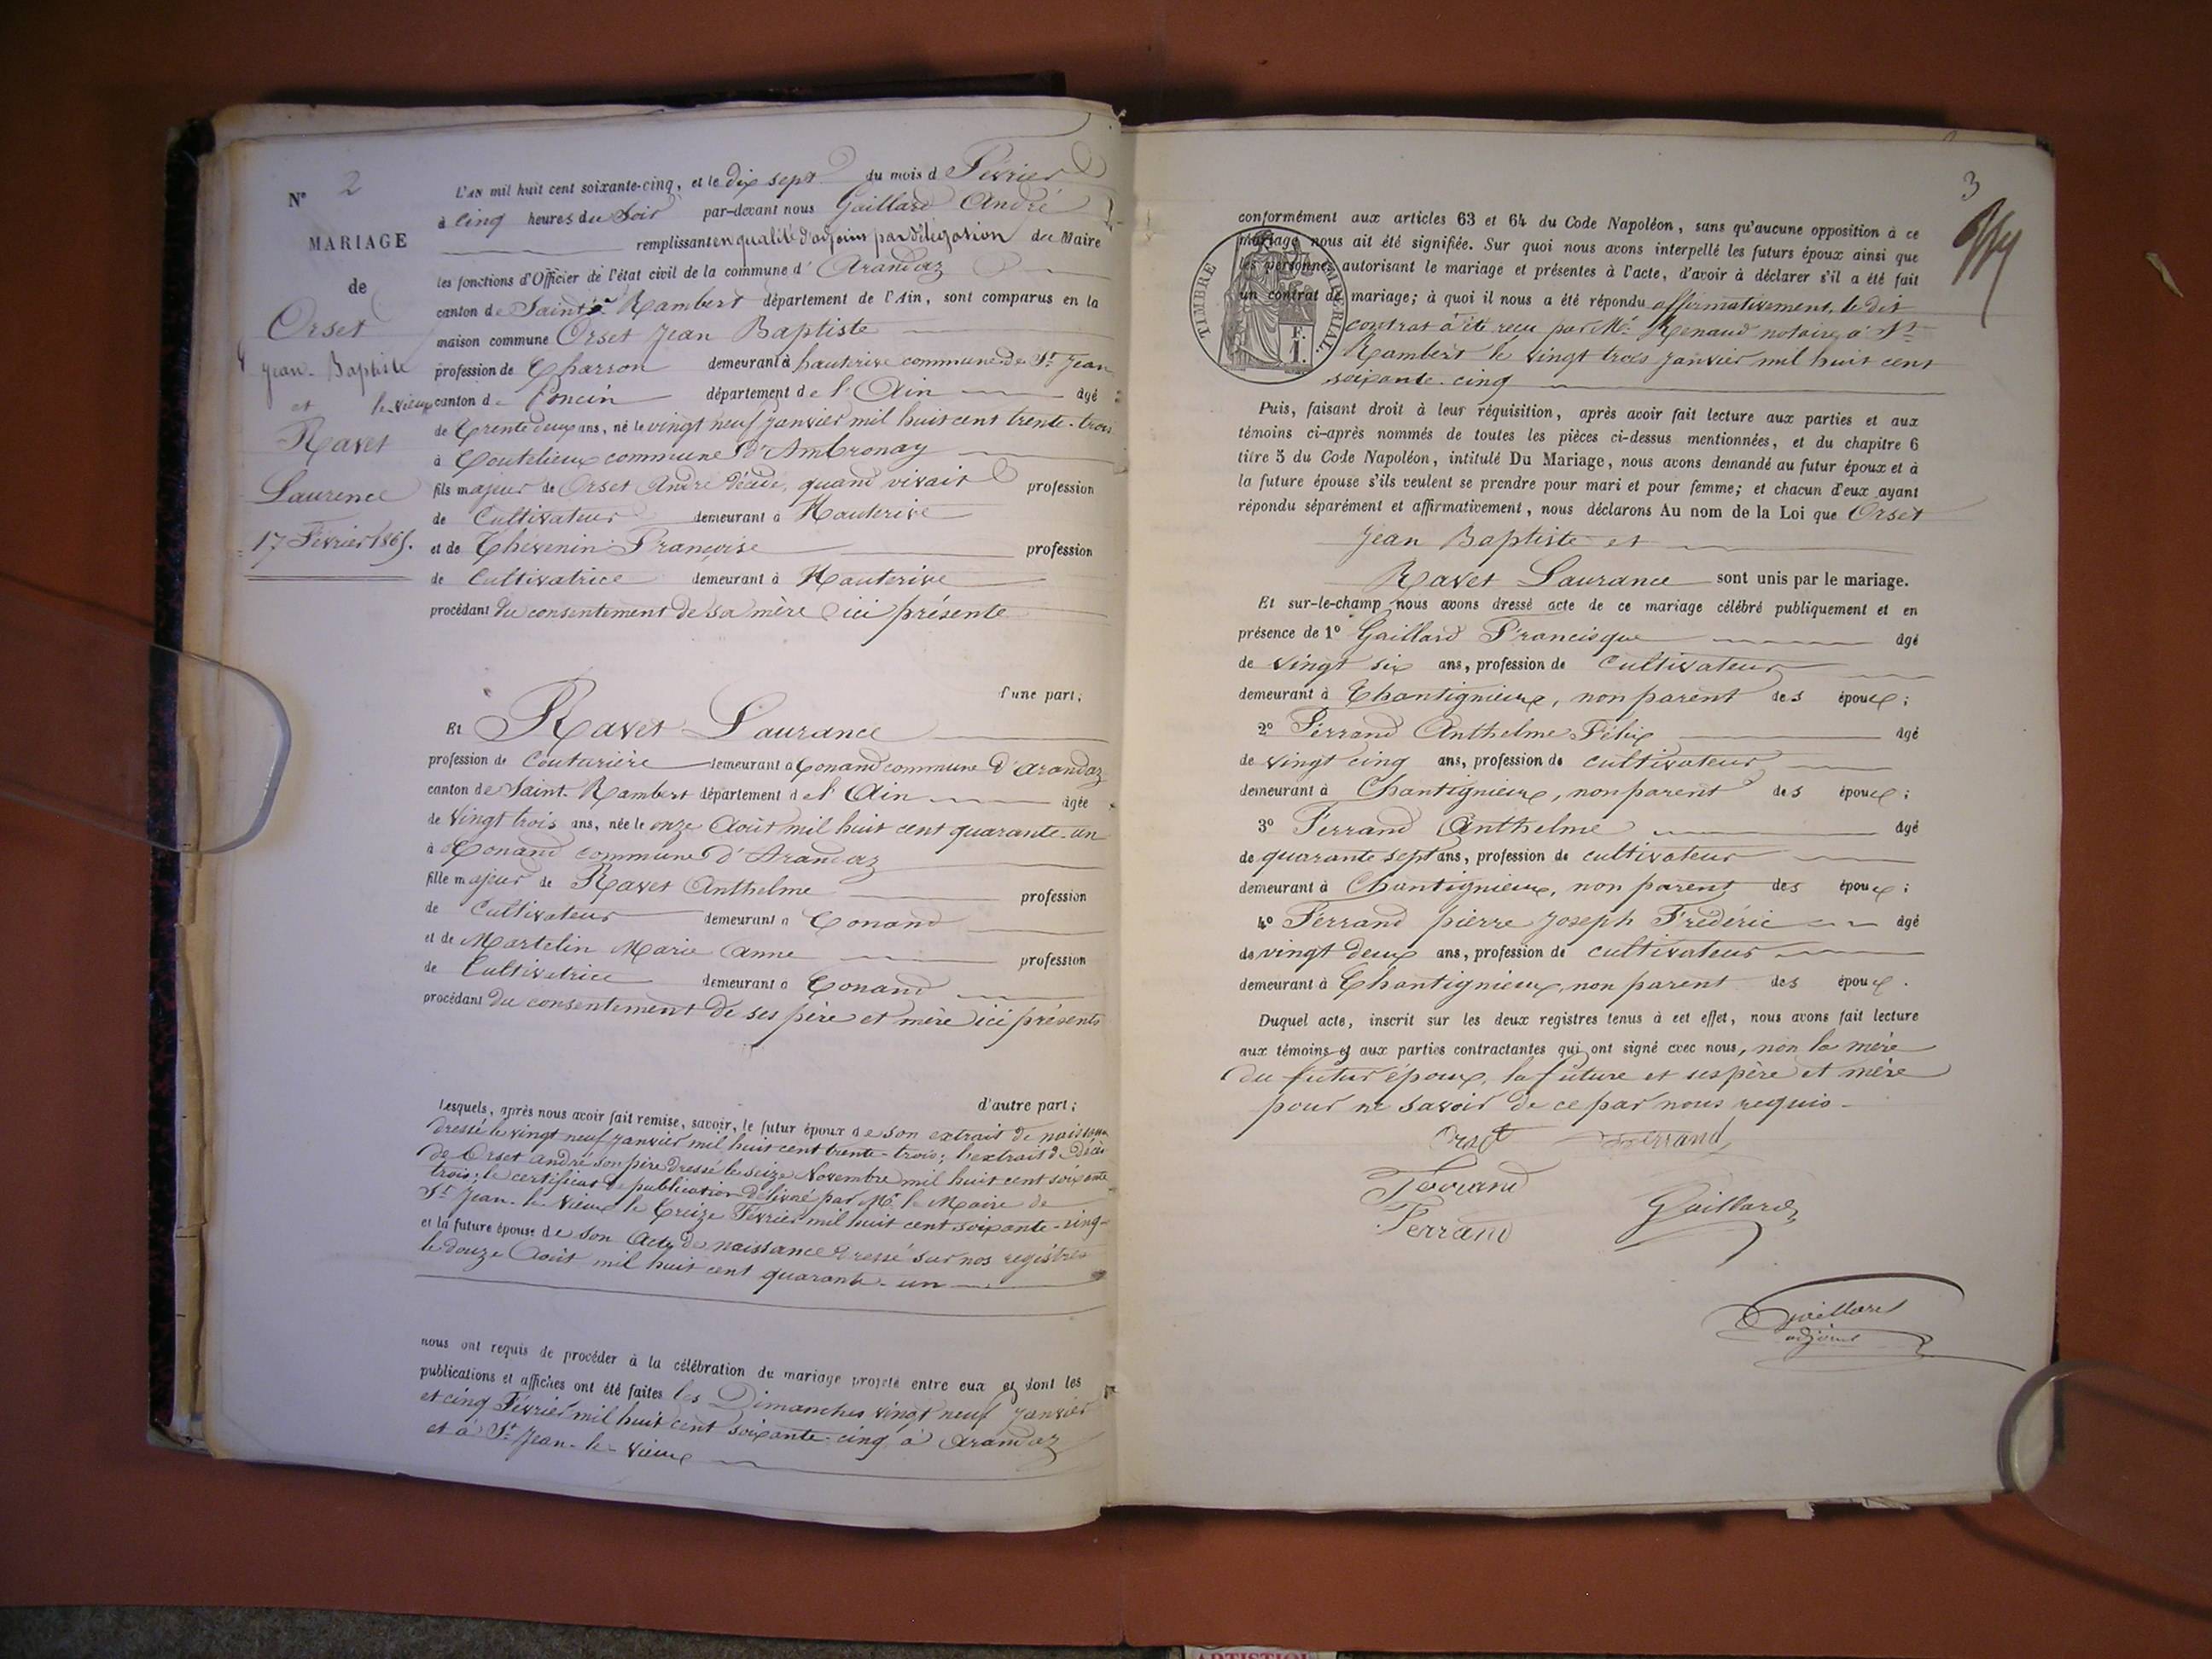 N° 2
MARIAGE
de
Orset
Jean-Baptiste
et
Ravet
Laurence
17 Février 1865.
L'an mil huit cent soixante-cinq, et le dix sept du mois d Février
à Cinq heures du Soir par-devant nous Gaillard André
remplissant en qualité d'adjoint par délégation du Maire
les fonctions d'Officier de l'état civil de la commune d' Arandaz
canton de Saint Rambert département de l'Ain, sont comparus en la
maison commune Orset Jean Baptiste
profession de Charron demeurant à hauterive commune de St Jean
le-vieux canton d Poncin département de l'Ain âgé
de Trente deux ans, né le vingt neuf Janvier mil huit cent trente-trois
à Coutelieux commune d'Ambronay
fils majeur de Orset André décédé, quand vivait profession
de Cultivateur demeurant à Hauterive
et de Thévenin Françoise profession
de Cultivatrice demeurant à Hauterive
procédant du consentement de sa mère ici présente
d'une part;
Et Ravet Laurance
profession de Couturière demeurant à Conand commune d'Arandaz
canton de Saint-Rambert département de l'Ain âgée
de Vingt trois ans, née le onze Août mil huit cent quarante-un
à Conand commune d'Arandaz
fille majeur de Ravet Anthelme profession
de Cultivateur demeurant à Conand
et de Martelin Marie Anne profession
de Cultivatrice demeurant à Conand
procédant du consentement de ses père et mère ici présents
d'autre part;
Lesquels, après nous avoir fait remise, savoir, le futur époux de son extrait de naissance
dressé le vingt neuf Janvier mil huit cent trente-trois; l'extrait de Décès
de Orset André son père dressé le seize Novembre mil huit cent soixante
trois; le certificat de publication délivré par Mr le Maire de
St Jean-le-Vieux le Treize Février mil huit cent soixante-cinq
et la future épouse de son Acte de naissance dressé sur nos registres
le douze Août mil huit cent quarante-un
nous ont requis de procéder à la célébration du mariage projeté entre eux et dont les
publications et affiches ont été faites les Dimanches vingt neuf Janvier
et cinq Février mil huit cent soixante-cinq à Arandaz
et à St Jean-le-Vieux
3
conformément aux articles 63 et 64 du Code Napoléon, sans qu'aucune opposition à ce
mariage nous ait été signifiée. Sur quoi nous avons interpellé les futurs époux ainsi que
les personnes autorisant le mariage et présentes à l'acte, d'avoir à déclarer s'il a été fait
un contrat de mariage; à quoi il nous a été répondu affirmativement, le dit
contrat a été reçu par Me Renaud notaire à St
Rambert le vingt trois Janvier mil huit cent
soixante-cinq
TIMBRE IMPÉRIAL
F.
1.
Puis, faisant droit à leur réquisition, après avoir fait lecture aux parties et aux
témoins ci-après nommés de toutes les pièces ci-dessus mentionnées, et du chapitre 6
titre 5 du Code Napoléon, intitulé Du Mariage, nous avons demandé au futur époux et à
la future épouse s'ils veulent se prendre pour mari et pour femme; et chacun d'eux ayant
répondu séparément et affirmativement, nous déclarons Au nom de la Loi que Orset
Jean Baptiste et
Ravet Laurance sont unis par le mariage.
Et sur-le-champ nous avons dressé acte de ce mariage célébré publiquement et en
présence de 1° Gaillard Francisque âgé
de vingt six ans, profession de Cultivateur
demeurant à Chantignieux, non parent des époux;
2° Ferrand Anthelme Félix âgé
de vingt cinq ans, profession de cultivateur
demeurant à Chantignieux, non parent des époux;
3° Ferrand Anthelme âgé
de quarante sept ans, profession de cultivateur
demeurant à Chantignieux, non parent des époux;
4° Ferrand pierre Joseph Frédéric âgé
de vingt deux ans, profession de cultivateur
demeurant à Chantignieux, non parent des époux.
Duquel acte, inscrit sur les deux registres tenus à cet effet, nous avons fait lecture
aux témoins et aux parties contractantes qui ont signé avec nous, non la mère
du futur époux, la future et ses père et mère
pour ne savoir de ce par nous requis.
Orset Ferrand
Ferrand
Gaillard
Ferrand
Gaillard
adjoint